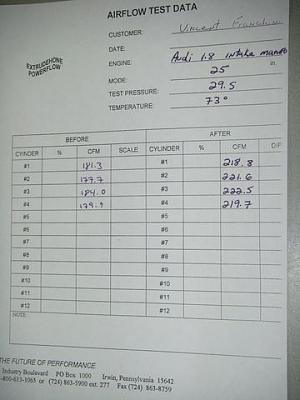 AIRFLOW TEST DATA
CUSTOMER: Vincent
EXTRUDEHONE
POWERFLOW
DATE:
ENGINE: Audi 1.8 intake
MODE: 25 in.
TEST PRESSURE: 29.5
TEMPERATURE: 73°
BEFORE AFTER
CYLINDER % CFM SCALE CYLINDER % CFM DIF
#1 181.3 #1 218.8
#2 #2 221.6
#3 184.0 #3 222.5
#4 #4 219.7
#5 #5
#6 #6
#7 #7
#8 #8
#9 #9
#10 #10
#11 #11
#12 #12
NOTE:
THE FUTURE OF PERFORMANCE
Industry Boulevard PO Box 1000 Irwin, Pennsylvania 15642
-800-613-1065 or (724) 863-5900 ext. 277 Fax (724) 863-8759